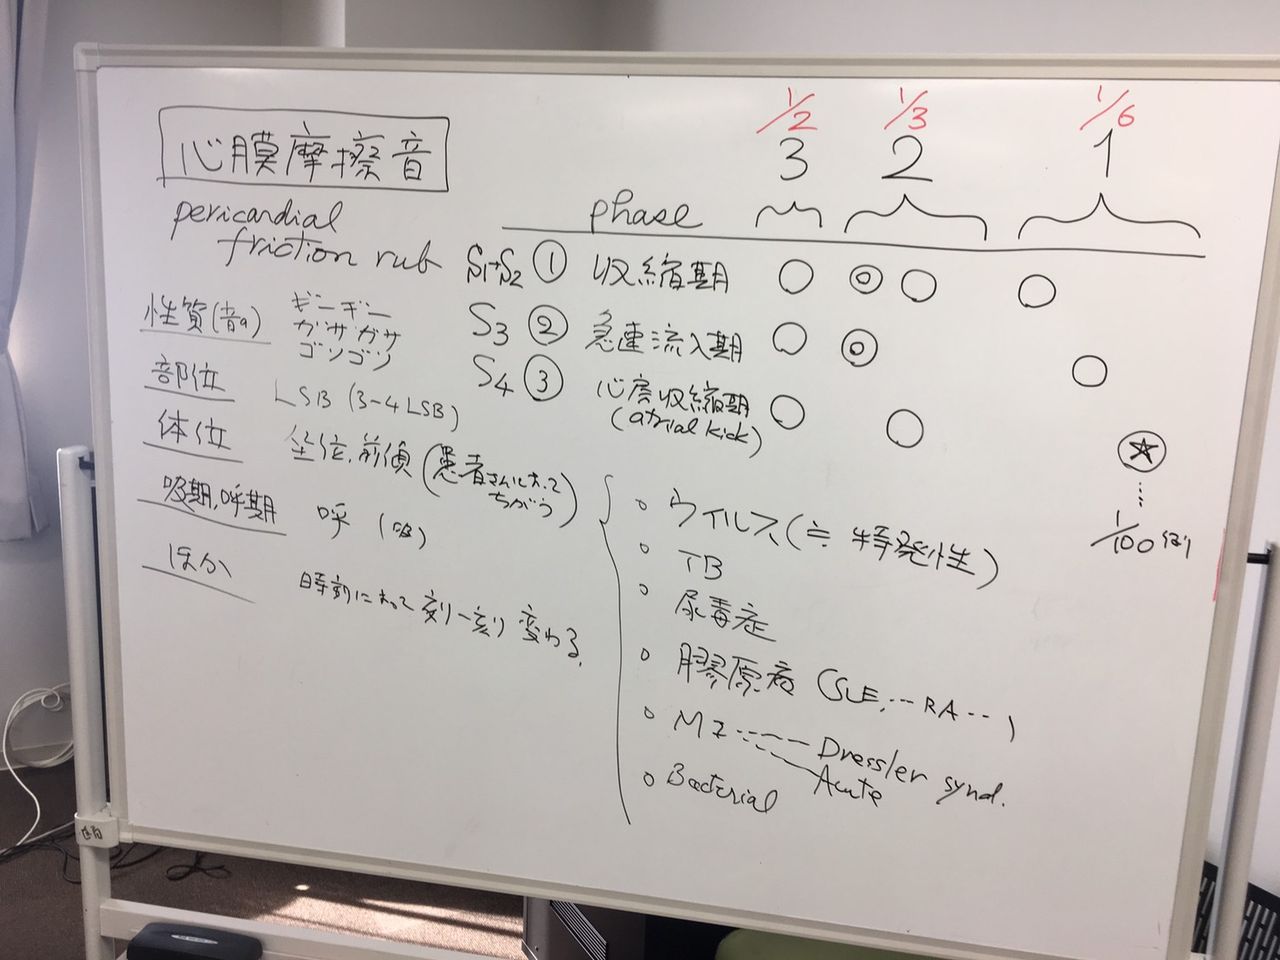 心膜摩擦音
pericardial
friction rub
1/2 1/3 1/6
3 2 1
phase
S1+S2 ① 収縮期 ○ ◎ ○ ○
S3 ② 急速流入期 ○ ◎ ○
S4 ③ 心房収縮期 ○ ○
(atrial kick)
☆
1/100
性質(音の) ギーギー
ガサガサ
ゴソゴソ
部位 LSB (3-4LSB)
体位 坐位、前傾(患者さんによって
ちがう)
吸期、呼期 呼 (吸)
ほか 時刻によって刻一刻変わる。
○ ウイルス(≒特発性)
○ TB
○ 尿毒症
○ 膠原病 (SLE, … RA…)
○ MI ----- Dressler synd.
Acute
○ Bacterial